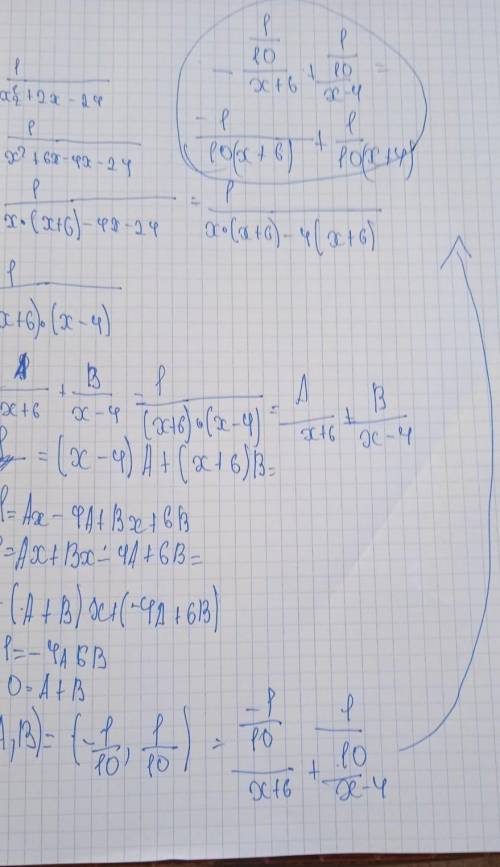 1/(x²+2x-24)
1/(x²+6x-4x-24)
1/(x·(x+6)-4x-24) = 1/(x·(x+6)-4(x+6))
1/(x+6)·(x-4)
A/(x+6) + B/(x-4) = 1/((x+6)·(x-4)) = A/(x+6) + B/(x-4)
1 = (x-4)A+(x+6)B=
1=Ax-4A+Bx+6B
1=Ax+Bx-4A+6B=
(A+B)x+(-4A+6B)
1=-4A 6B
0=A+B
A,B)=(-1/10, 1/10) = (-1/10)/(x+6) + (1/10)/(x-4)
-(1/10)/(x+6) + (1/10)/(x-4) =
-1/(10(x+6)) + 1/(10(x+4))